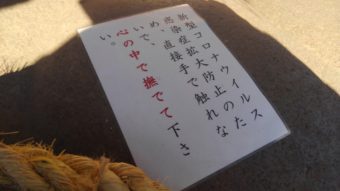 新型コロナウイルス
感染症拡大防止のな
め、直接手で触れた
いで、
心の中で撫でて下さ
い。